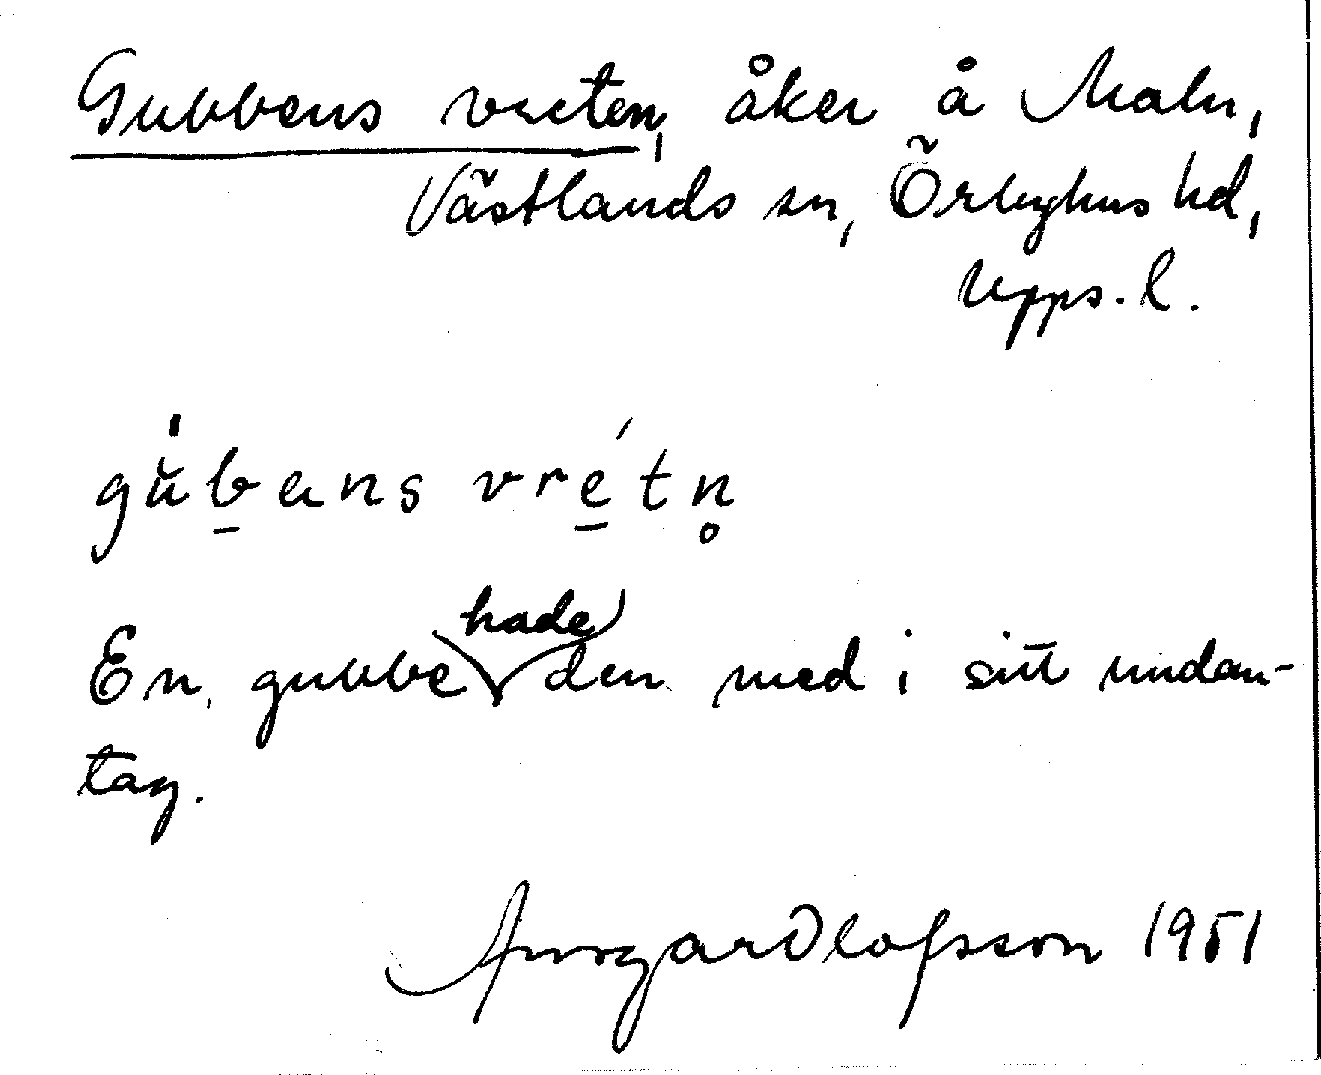 Gubbens vreten, åker å Maln,
Västlands sn, Örbyhus hd,
Upps. l.
gu̍b̠ens vré̠tn̥
En gubbe hade den med i sitt undan-
tag.
Ansgar Olofsson 1951